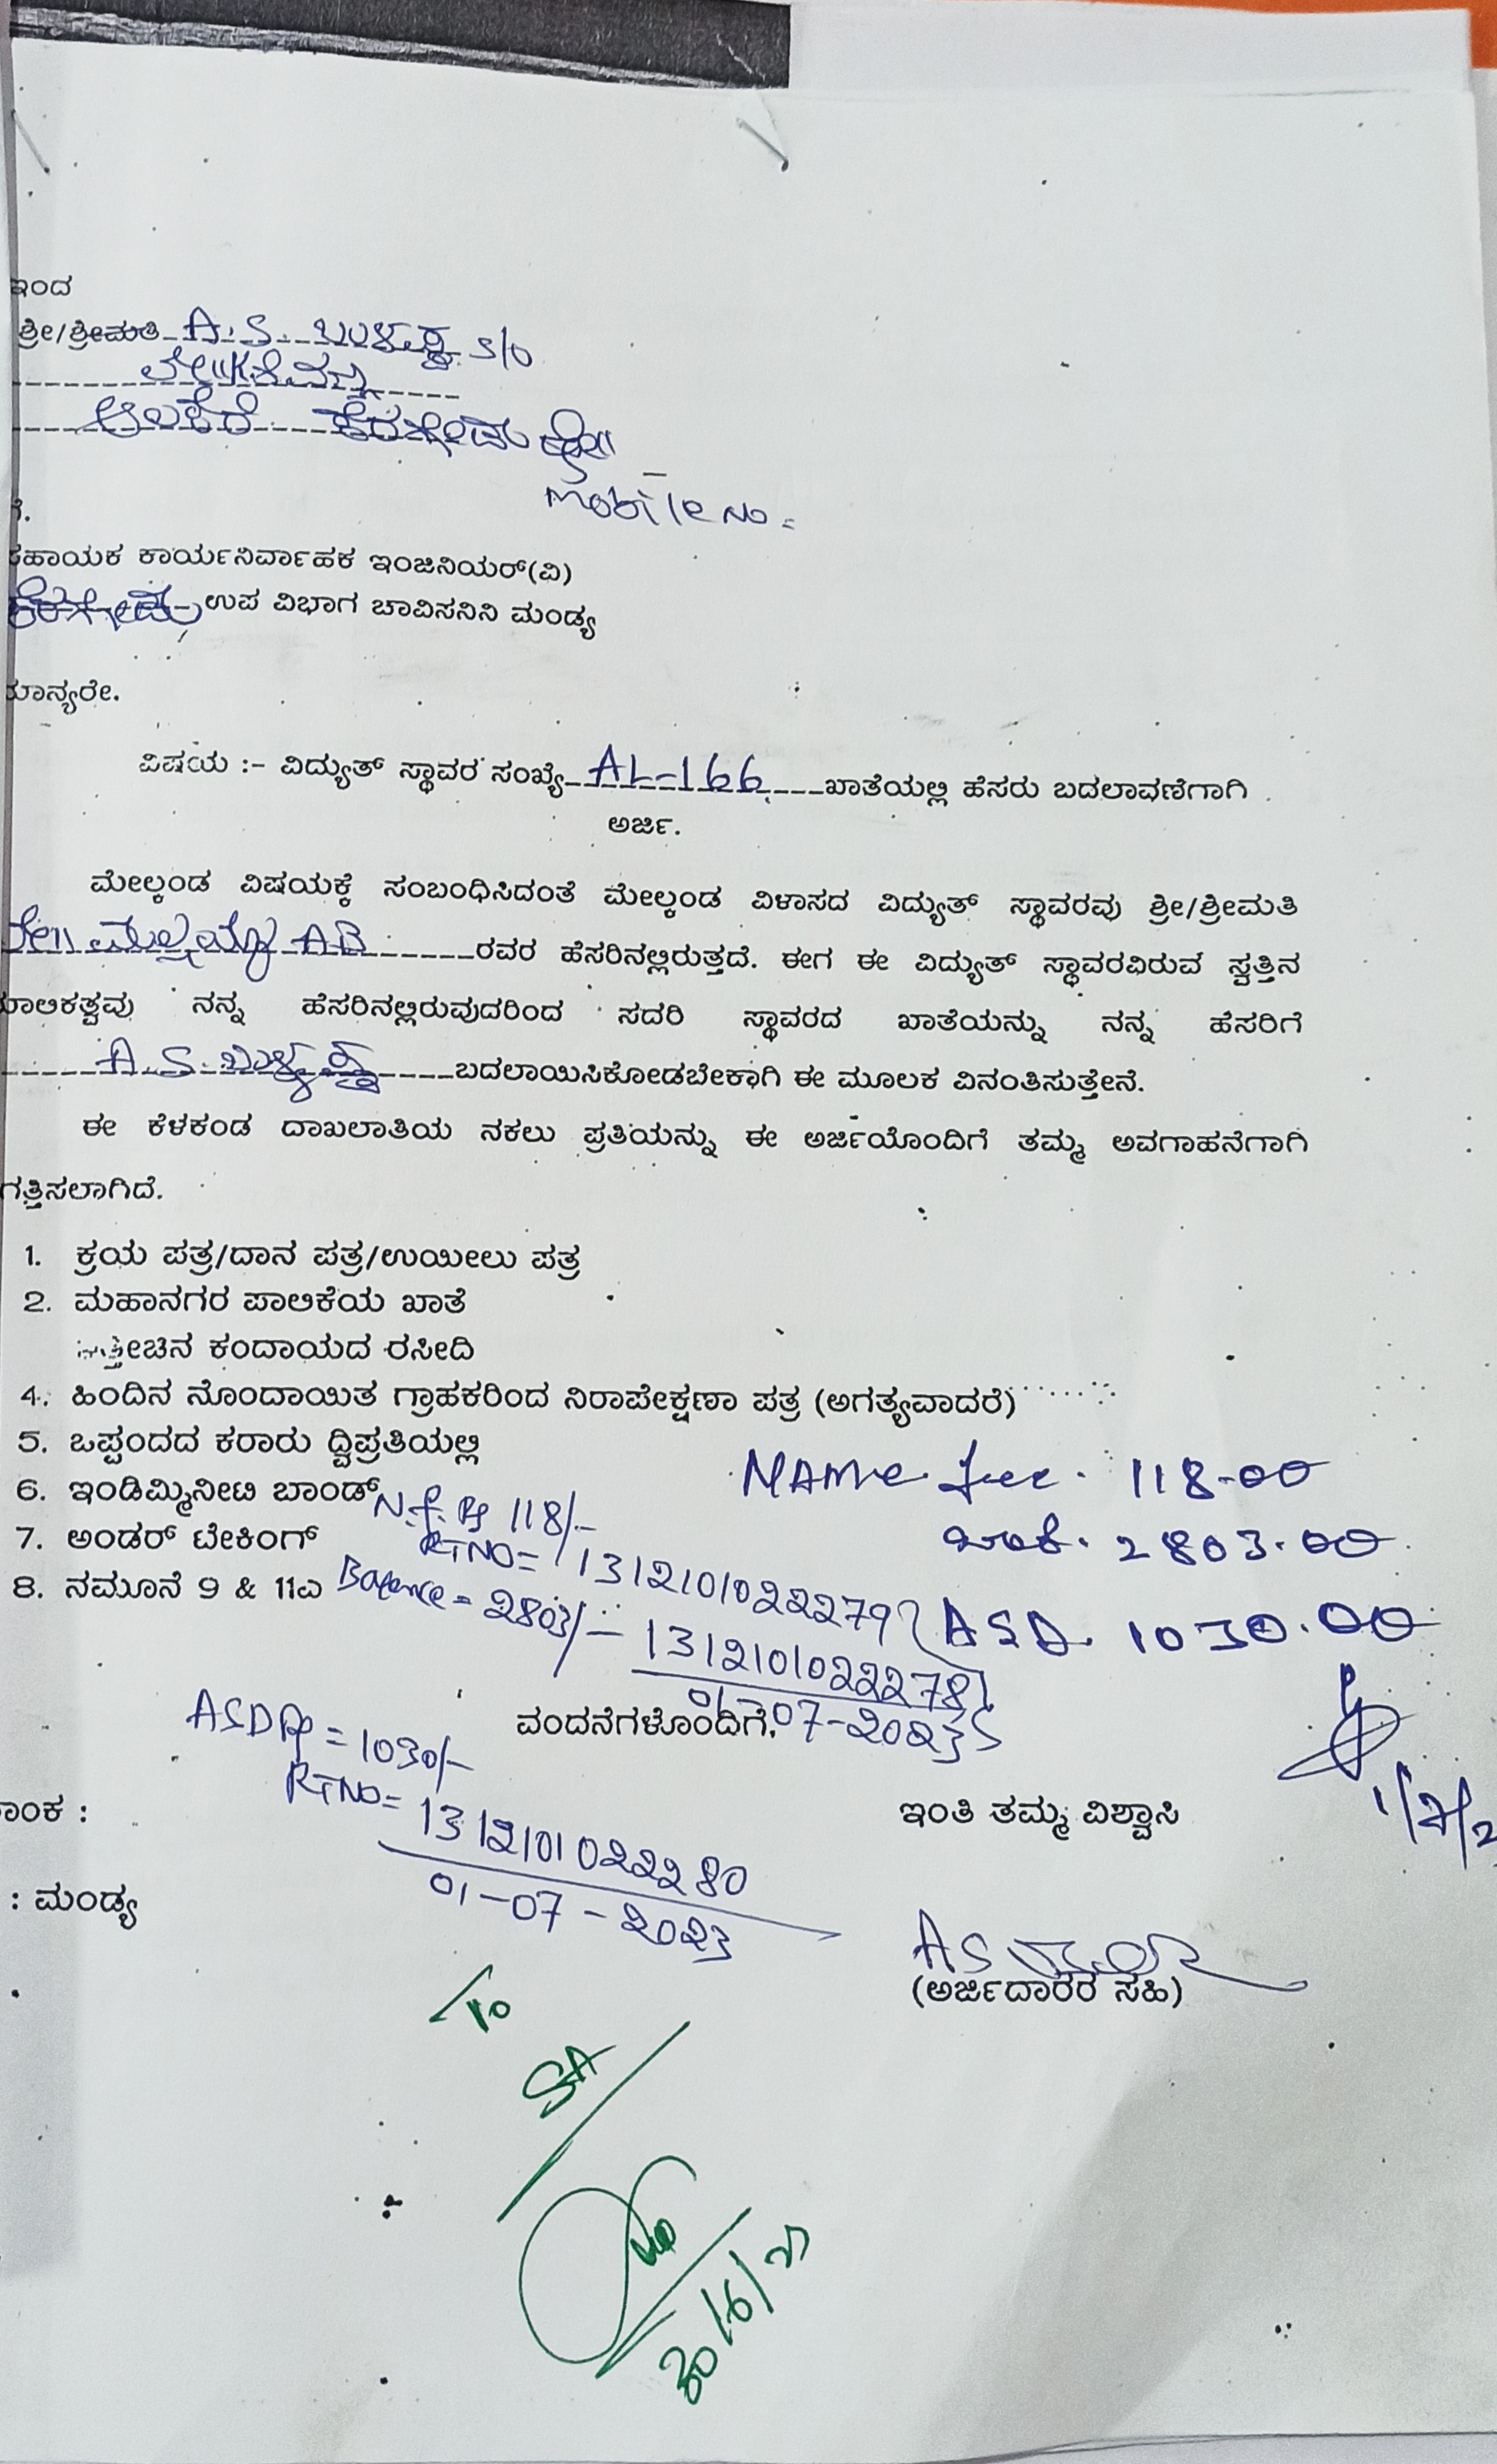 ಇಂದ
ಶ್ರೀ/ಶ್ರೀಮತಿ A.S. S/o
ಆಲಕೆರೆ
Mobile No =
ಸಹಾಯಕ ಕಾರ್ಯನಿರ್ವಾಹಕ ಇಂಜಿನಿಯರ್(ವಿ)
ಉಪ ವಿಭಾಗ ಚಾವಿಸನಿನಿ ಮಂಡ್ಯ
ಮಾನ್ಯರೇ.
ವಿಷಯ :- ವಿದ್ಯುತ್ ಸ್ಥಾವರ ಸಂಖ್ಯೆ AL-166 ಖಾತೆಯಲ್ಲಿ ಹೆಸರು ಬದಲಾವಣೆಗಾಗಿ
ಅರ್ಜಿ.
ಮೇಲ್ಕಂಡ ವಿಷಯಕ್ಕೆ ಸಂಬಂಧಿಸಿದಂತೆ ಮೇಲ್ಕಂಡ ವಿಳಾಸದ ವಿದ್ಯುತ್ ಸ್ಥಾವರವು ಶ್ರೀ/ಶ್ರೀಮತಿ
AB ರವರ ಹೆಸರಿನಲ್ಲಿರುತ್ತದೆ. ಈಗ ಈ ವಿದ್ಯುತ್ ಸ್ಥಾವರವಿರುವ ಸ್ವತ್ತಿನ
ಮಾಲಿಕತ್ವವು ನನ್ನ ಹೆಸರಿನಲ್ಲಿರುವುದರಿಂದ ಸದರಿ ಸ್ಥಾವರದ ಖಾತೆಯನ್ನು ನನ್ನ ಹೆಸರಿಗೆ
A.S. ಬದಲಾಯಿಸಿಕೋಡಬೇಕಾಗಿ ಈ ಮೂಲಕ ವಿನಂತಿಸುತ್ತೇನೆ.
ಈ ಕೆಳಕಂಡ ದಾಖಲಾತಿಯ ನಕಲು ಪ್ರತಿಯನ್ನು ಈ ಅರ್ಜಿಯೊಂದಿಗೆ ತಮ್ಮ ಅವಗಾಹನೆಗಾಗಿ
ಗತ್ತಿಸಲಾಗಿದೆ.
1. ಕ್ರಯ ಪತ್ರ/ದಾನ ಪತ್ರ/ಉಯೀಲು ಪತ್ರ
2. ಮಹಾನಗರ ಪಾಲಿಕೆಯ ಖಾತೆ
ಇತ್ತೀಚಿನ ಕಂದಾಯದ ರಸೀದಿ
4. ಹಿಂದಿನ ನೊಂದಾಯಿತ ಗ್ರಾಹಕರಿಂದ ನಿರಾಪೇಕ್ಷಣಾ ಪತ್ರ (ಅಗತ್ಯವಾದರೆ)
5. ಒಪ್ಪಂದದ ಕರಾರು ದ್ವಿಪ್ರತಿಯಲ್ಲಿ
6. ಇಂಡಿಮ್ಮಿನೀಟಿ ಬಾಂಡ್
NAME fee. 118-00
N.f. Rs 118/-
7. ಅಂಡರ್ ಟೇಕಿಂಗ್
RTNO= 1312101022279
2803.00
8. ನಮೂನೆ 9 & 11ಎ
Balence = 2803/- 1312101022278
ASD. 1030.00
01-07-2023
ASD Rs = 1030/-
ವಂದನೆಗಳೊಂದಿಗೆ,
RTNO= 1312101022280
01-07-2023
1/7/2
ಾಂಕ :
ಇಂತಿ ತಮ್ಮ ವಿಶ್ವಾಸಿ
: ಮಂಡ್ಯ
AS
(ಅರ್ಜಿದಾರರ ಸಹಿ)
To
SA
30/6/23